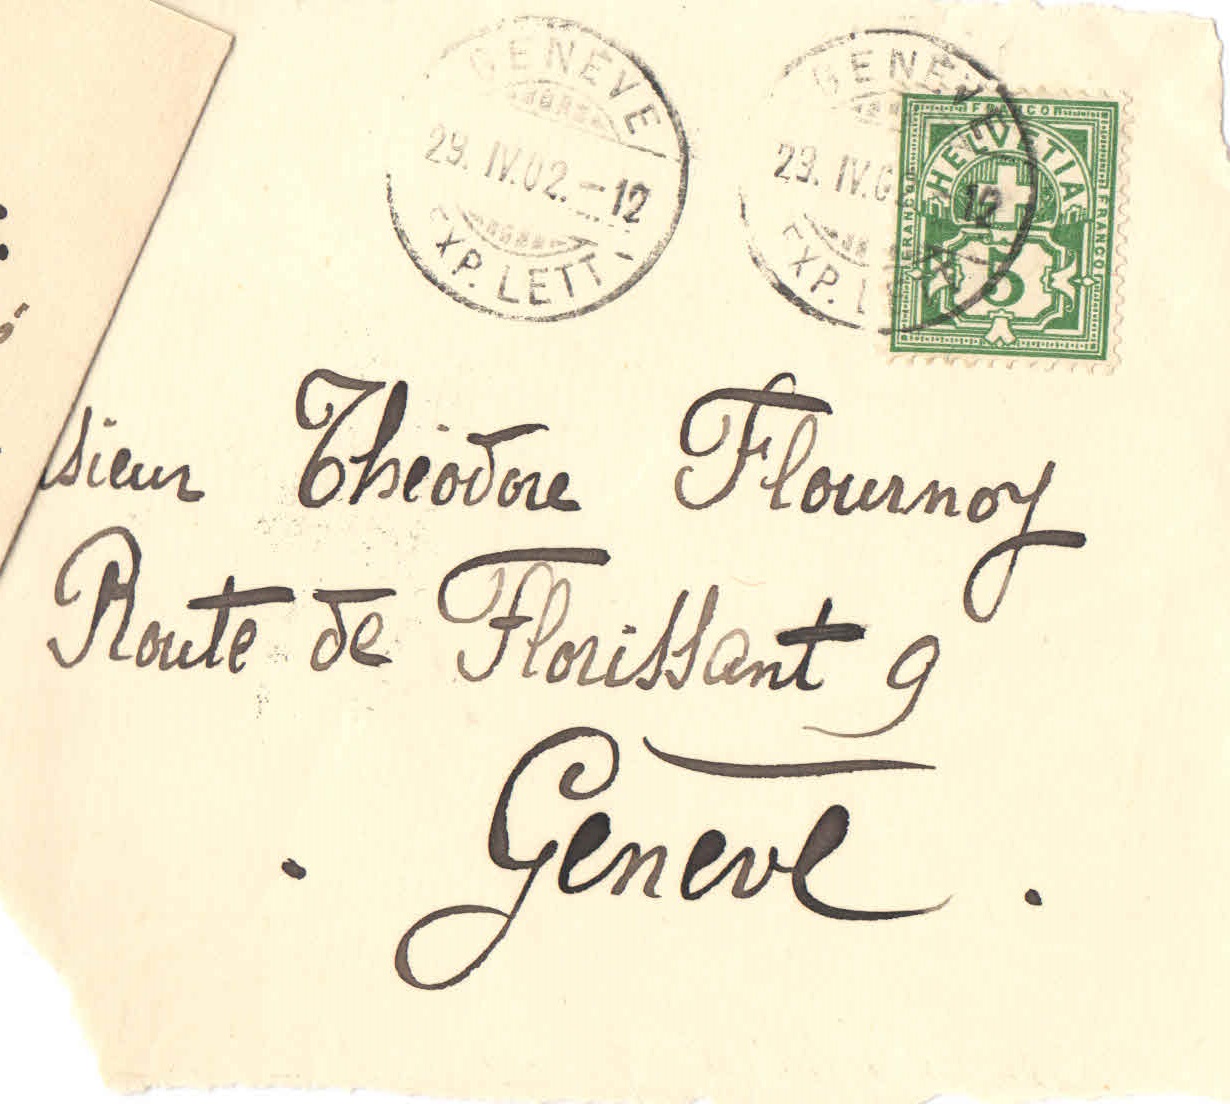 GENÈVE
29. IV. 02. – 12
EXP. LETT.
GENÈVE
29. IV. 0 12
EXP. LETT
FRANCO
FRANCO
FRANCO
HELVETIA
5
sieur Théodore Flournoy
Route de Florissant 9
Genève